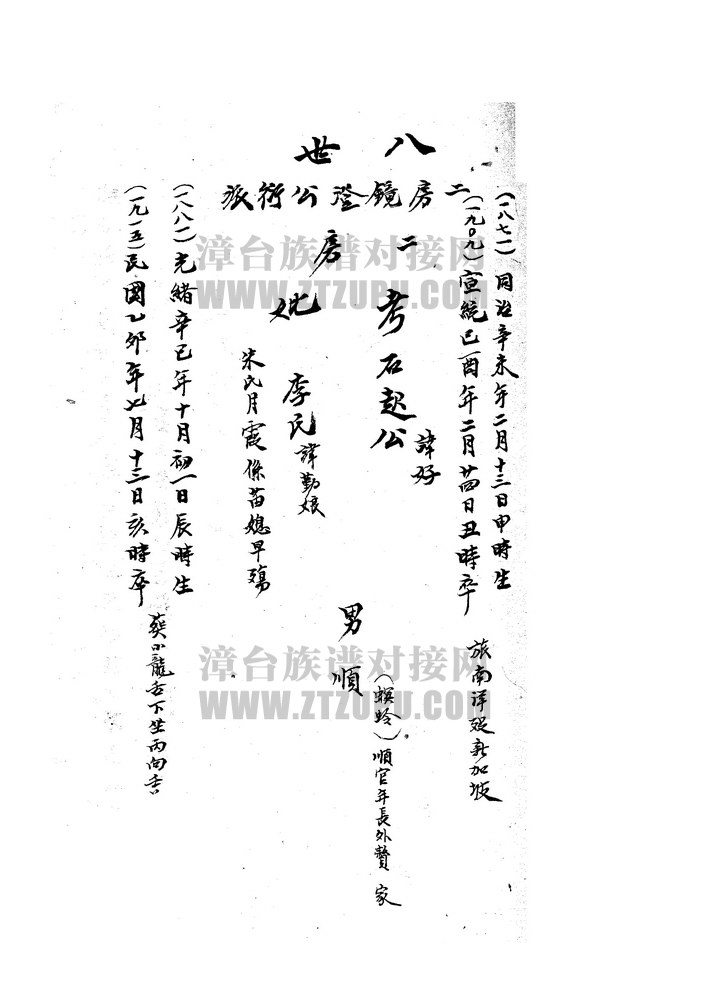 八世
二房鏡澄公衍派
二房
考石起公
諱好
妣李氏諱勤娘
宋氏月霞係苗媳早殤
(一八七一)同治辛未年二月十三日申時生
(一九〇九)宣統己酉年二月廿四日丑時卒
旅南洋歿新加坡
男順
(螟蛉)順官年長外贅家
(一八八一)光緒辛巳年十月初一日辰時生
(一九一五)民國乙卯年七月十三日亥時卒
葬小龍舌下坐丙向
漳台族谱对接网
WWW.ZTZUPU.COM
漳台族谱对接网
WWW.ZTZUPU.COM